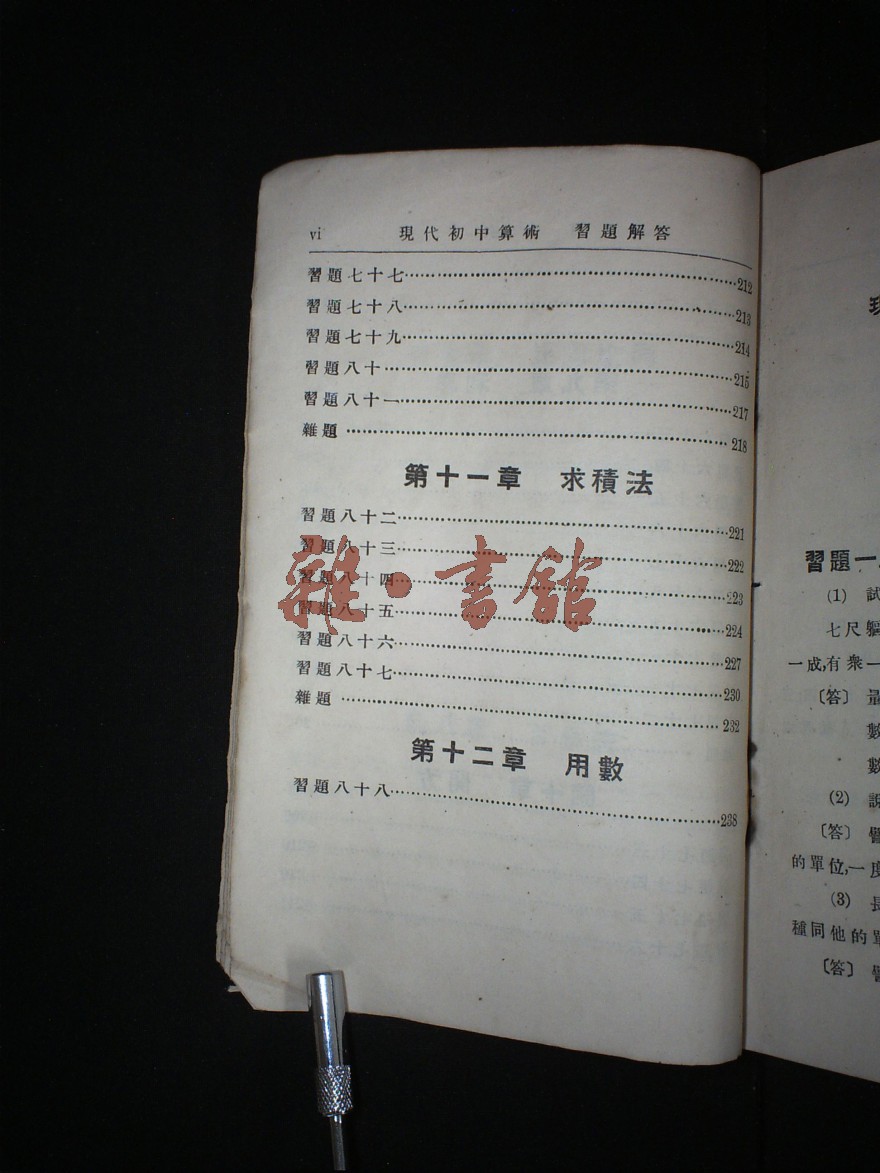 vi 現代初中算術 習題解答
習題七十七……212
習題七十八……213
習題七十九……214
習題八十……215
習題八十一……217
雜題……218
第十一章 求積法
習題八十二……221
習題八十三……222
習題八十四……223
習題八十五……224
習題八十六……227
習題八十七……230
雜題……232
第十二章 用數
習題八十八……238
雜·書館
習題一
(1) 試
七尺軀
一成,有衆一
〔答〕
數
數
(2)
〔答〕 譬
的單位,一度
(3) 長
種同他的單
〔答〕 譬